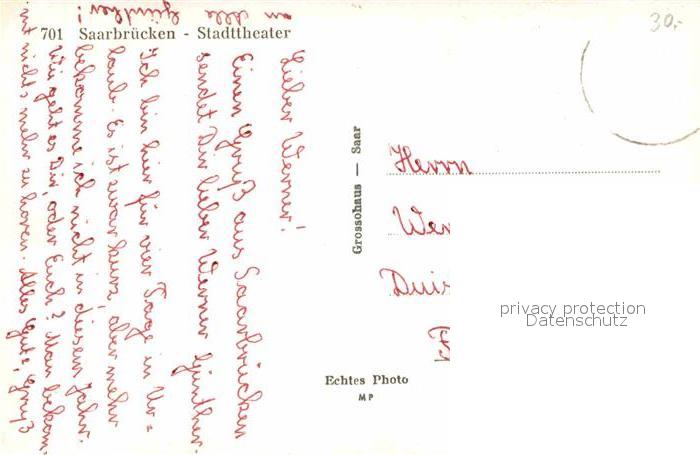 701 Saarbrücken - Stadttheater
Lieber Werner!
Einen Gruß aus Saarbrücken
sendet Dir lieber Werner Günther.
Ich bin hier für vier Tage in Ur=
laub. Es ist zwar kurz, aber mehr
bekomme ich nicht in diesem Jahr.
Wie geht es Dir, oder Euch? Man bekom
mt nichts mehr zu hören. Alles Gute, Gruß
an alle Günther!
Grossohaus — Saar
Echtes Photo
MP
30.-
Herrn
Wer
Duis
privacy protection
Datenschutz